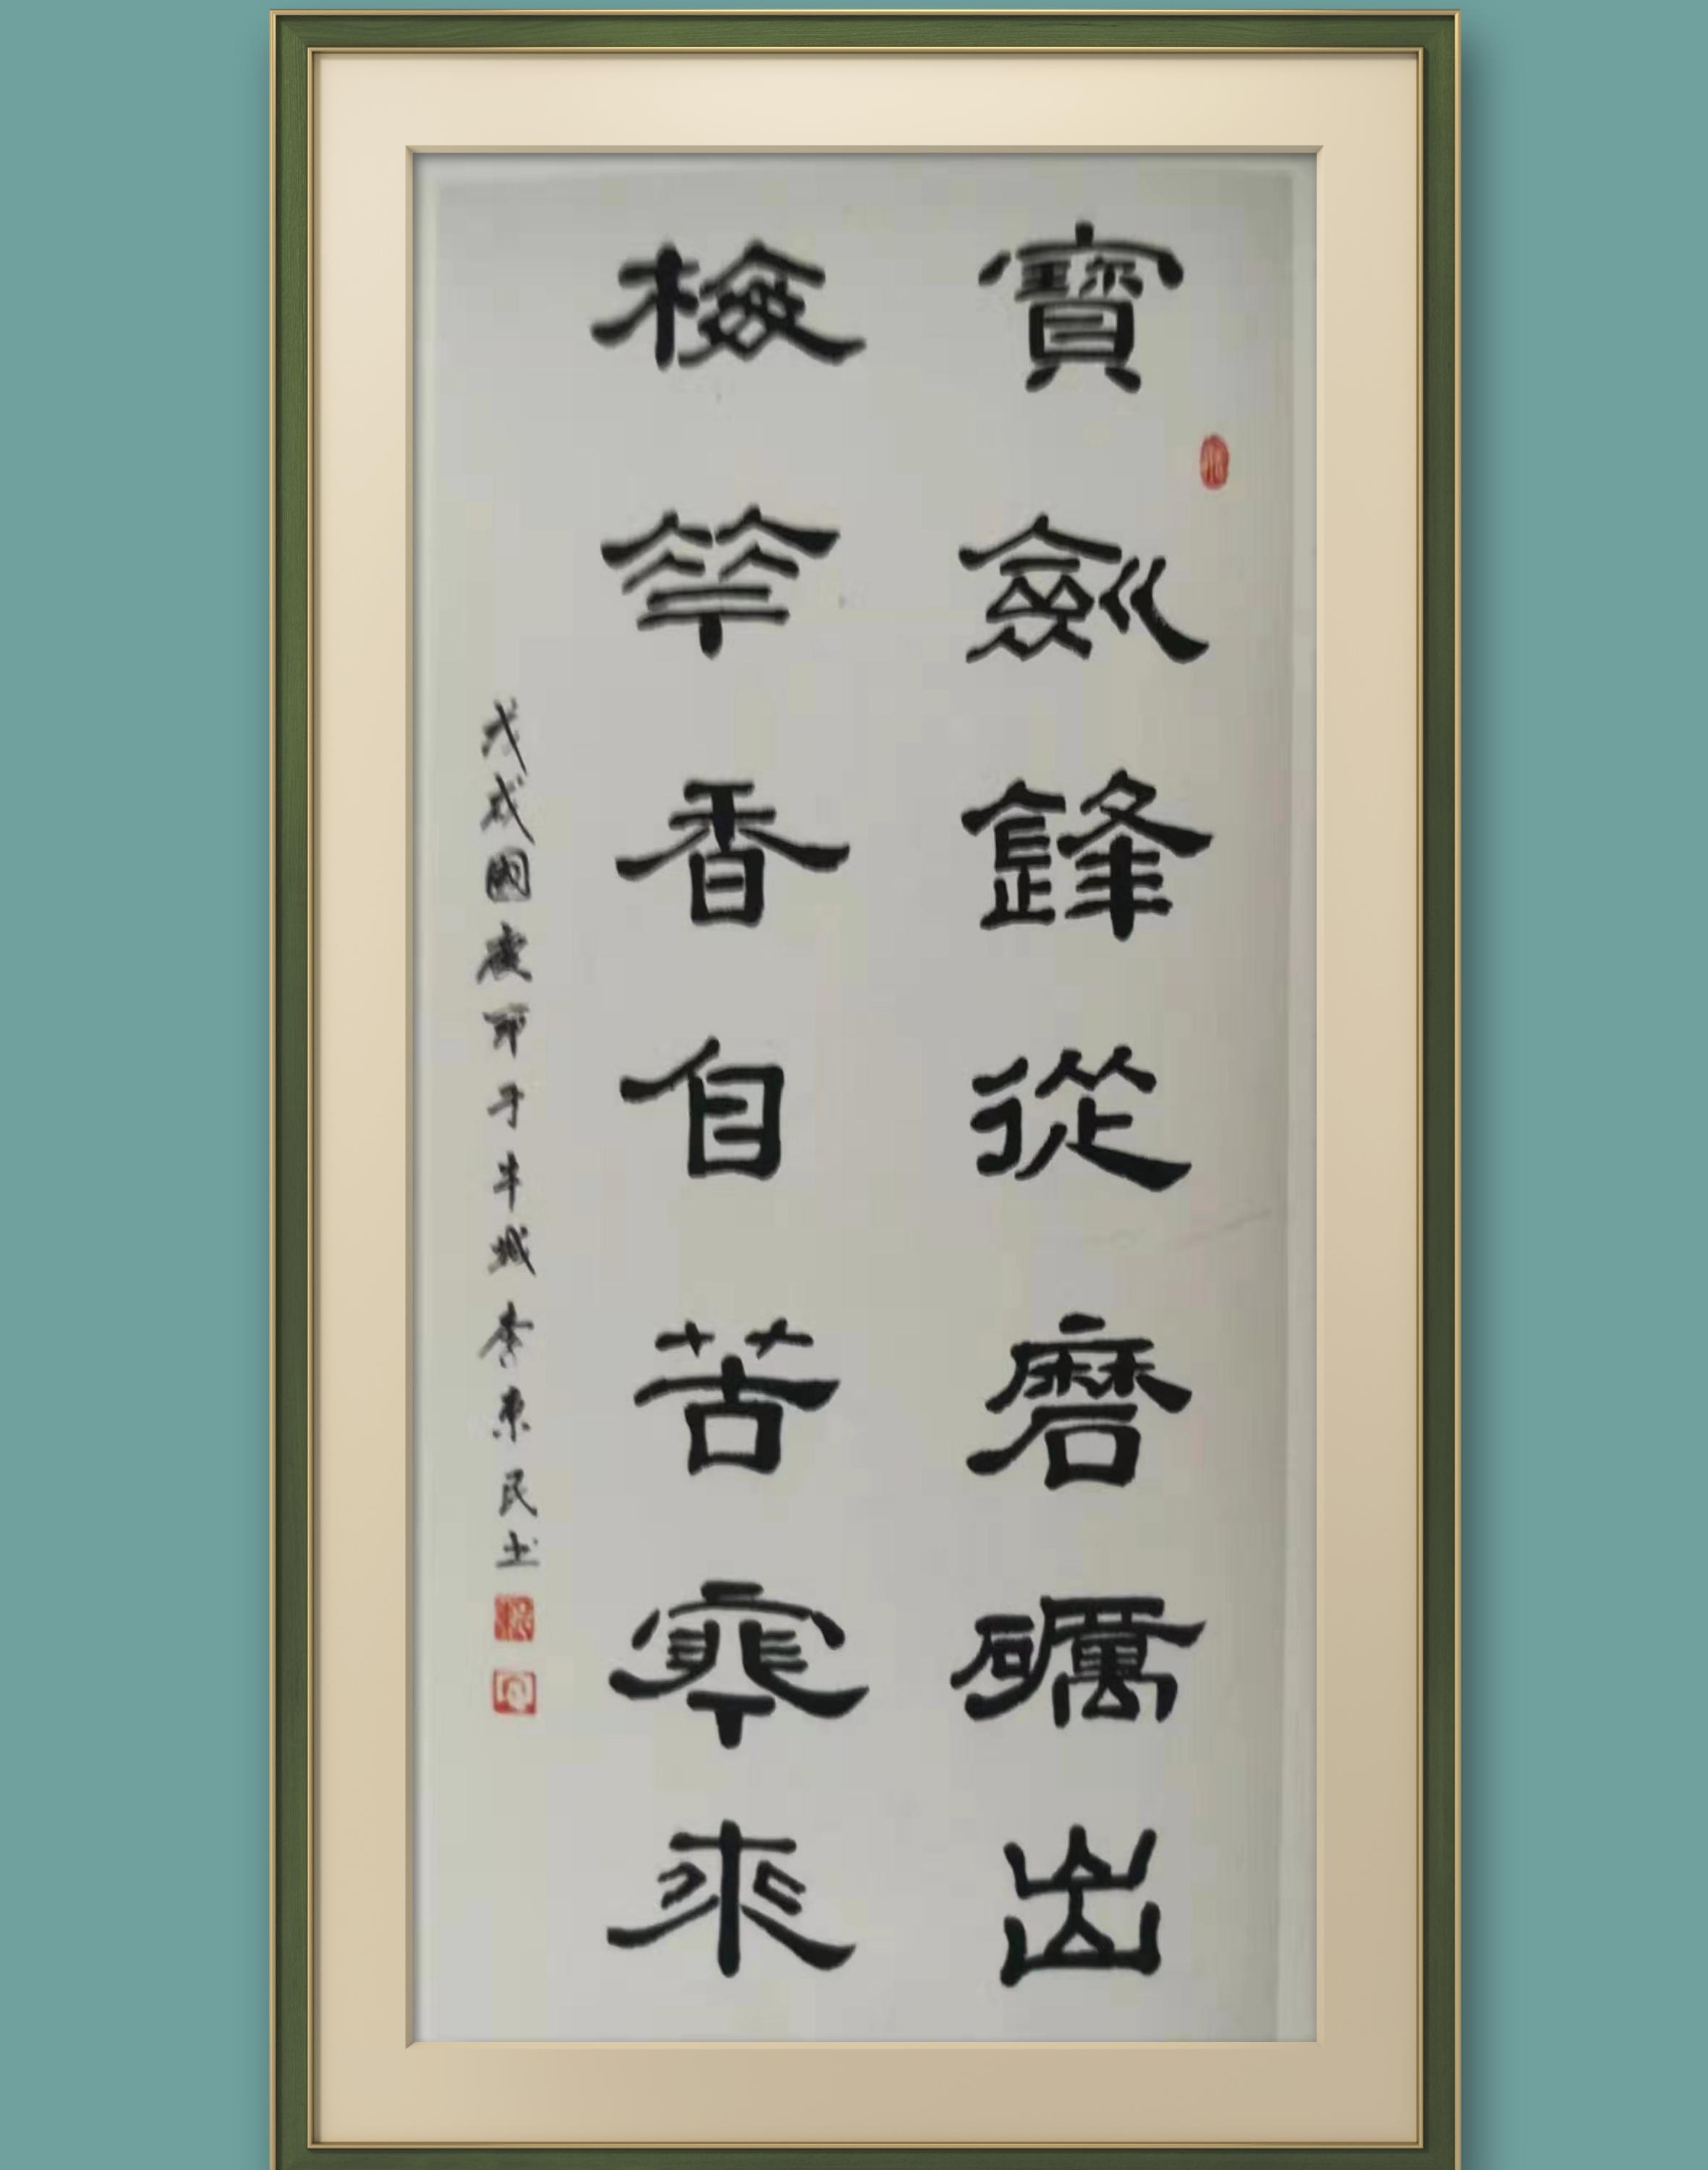 寶劍鋒從磨礪出
梅華香自苦寒來
戊戌國慶节于牛城李東民书